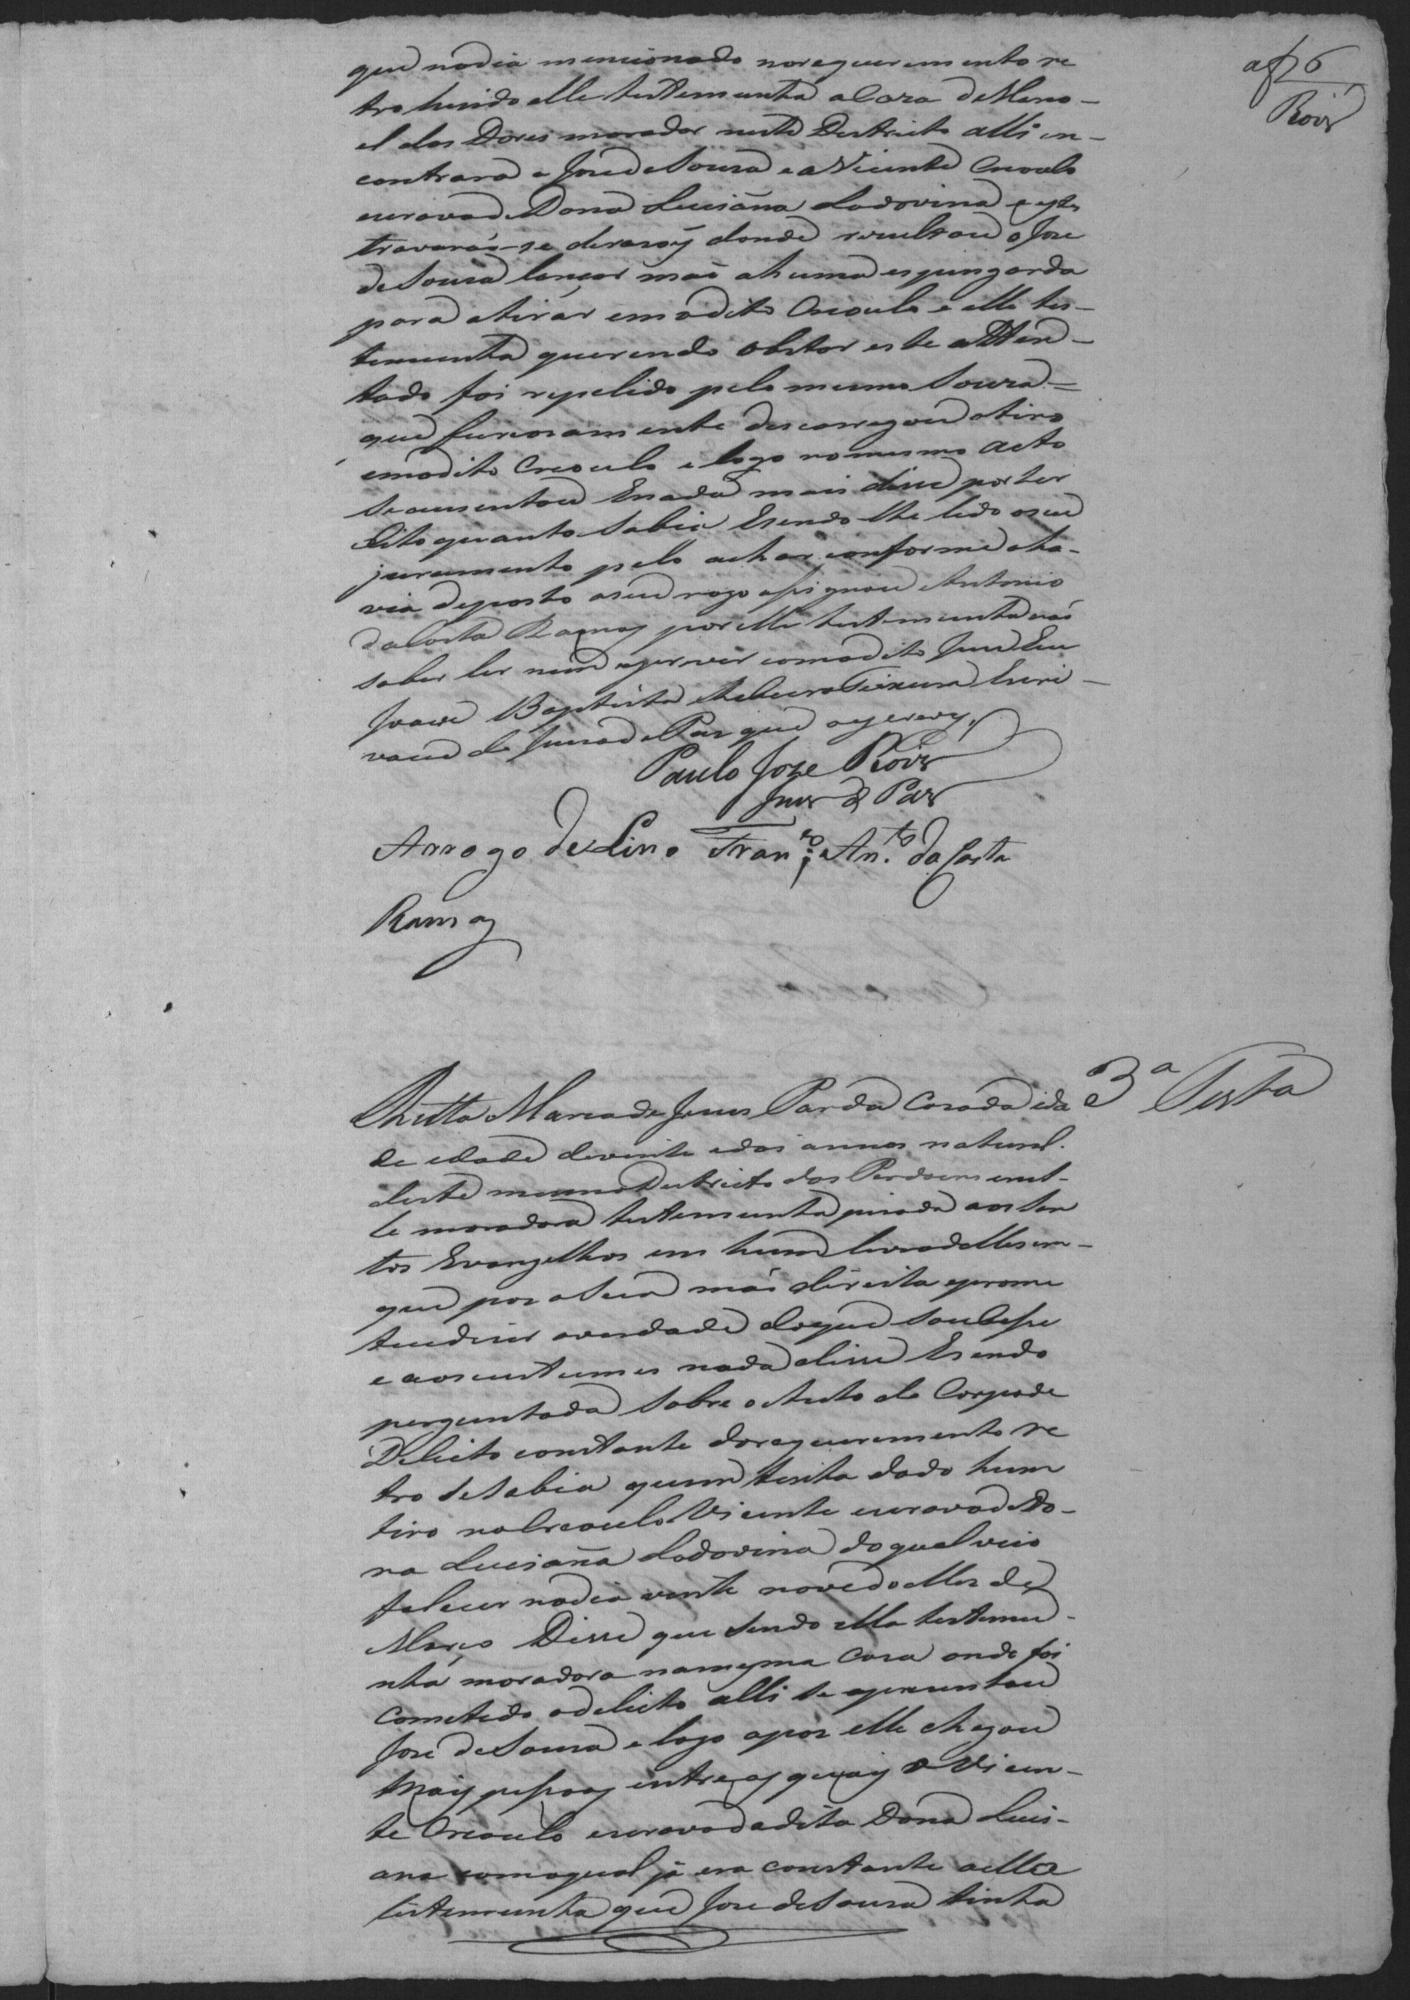 af 6
Roiz
que no dia mencionado no requerimento re
tro hindo elle testemunha a Caza de Mano-
el das Dores morador neste Destricto alli en-
contrara a Joze de Souza e a Vicente Creoulo
escravo de Dona Luciana Lodovina e estes
travarão-se de razoỹ donde rezultou o Joze
de Souza lançar mão a huma espingarda
para atirár em o dito Creoulo e elle tes-
temunha querendo obstar este atten-
tado foi repelido pelo mesmo Souza =
que furiosamente descarregou o tiro
em o dito Creoulo e logo no mesmo acto
se auzentou E nada mais disse por ter
dito quanto sabia E sendo lhe lido o seu
juramento pelo achar conforme o ha-
via deposto a seu rogo assignou Antonio
da Costa Ramos por elle testemunha não
saber ler nem escrever com o dito Juiz Eu
João Baptista Teixeira Escri-
vam do Juizo de Paz que o escrevy.
Paulo Joze Roiz
Juiz de Paz
Arrogo de Lino Fran.co An.to da Costa
Ramos
3ª Testa
Ritta Maria de Jesus Parda Cazada ida
de edade de vinte e dois annos natural
deste mesmo Destricto dos Perdoens enel-
le moradora testemunha jurada aos San
tos Evangelhos em hum livro delles em
que poz a sua mão direita e prome
teu dizer a verdade do que soubesse
e aos custumes nada disse E sendo
perguntada sobre o Auto de Corpo de
Delicto constante do requerimento re
tro se sabia quem tinha dado hum
tiro no Creoulo Vicente escravo de Do-
na Luciana Lodovina do qual veio
falecer no dia vinte nove do Mes de
Março Disse que sendo ella testemu-
nha moradora na mesma Caza onde foi
cometido o delicto alli se aprezentou
Joze de Souza e logo apoz elle chegou
mais pessoas entre as quais o Vicen-
te Creoulo escravo da dita Dona Luci-
ana com o qual já era constante a ella
testemunha que Joze de Souza tinha